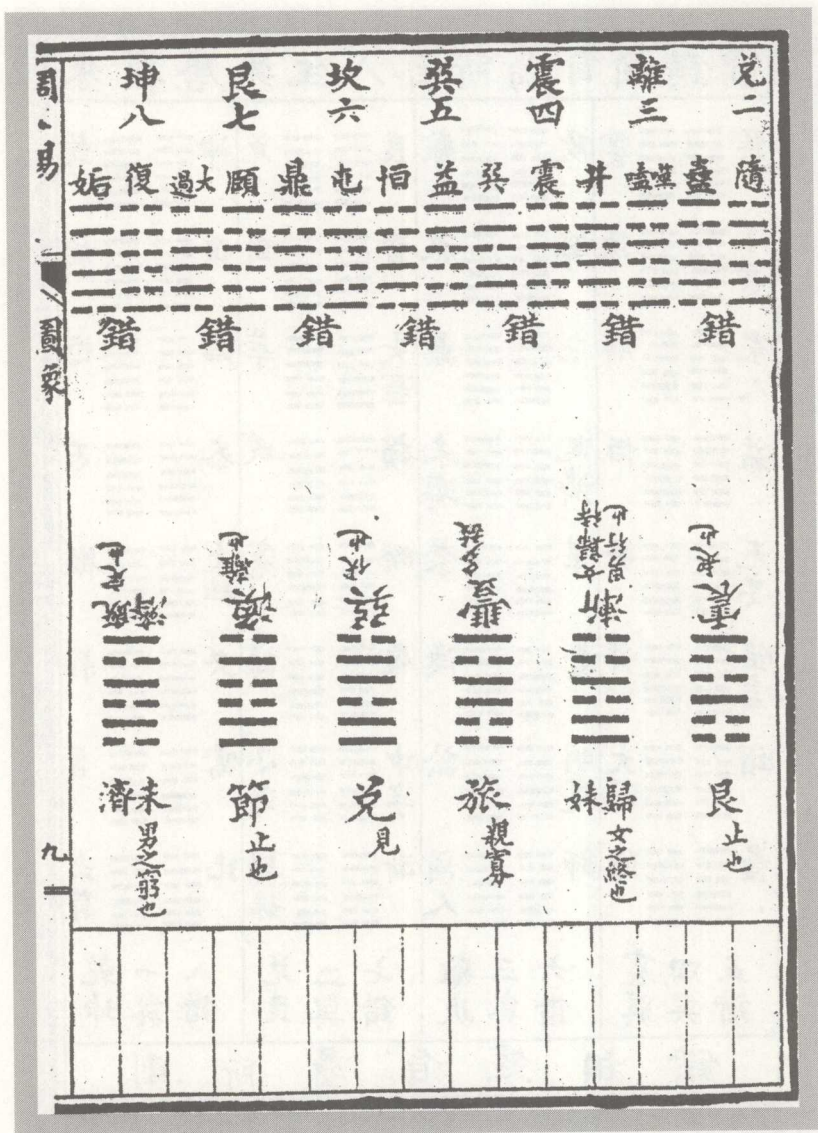 兌二
離三
震四
巽五
坎六
艮七
坤八
隨
蠱
噬嗑
井
震
巽
益
恒
屯
鼎
頤
大過
復
姤
錯
錯
錯
錯
錯
錯
錯
震起也
漸女歸待男行也
豐多故
巽伏也
渙離也
既濟定也
艮止也
歸妹女之終也
旅親寡
兌見
節止也
未濟男之窮也
周易
圖象
九